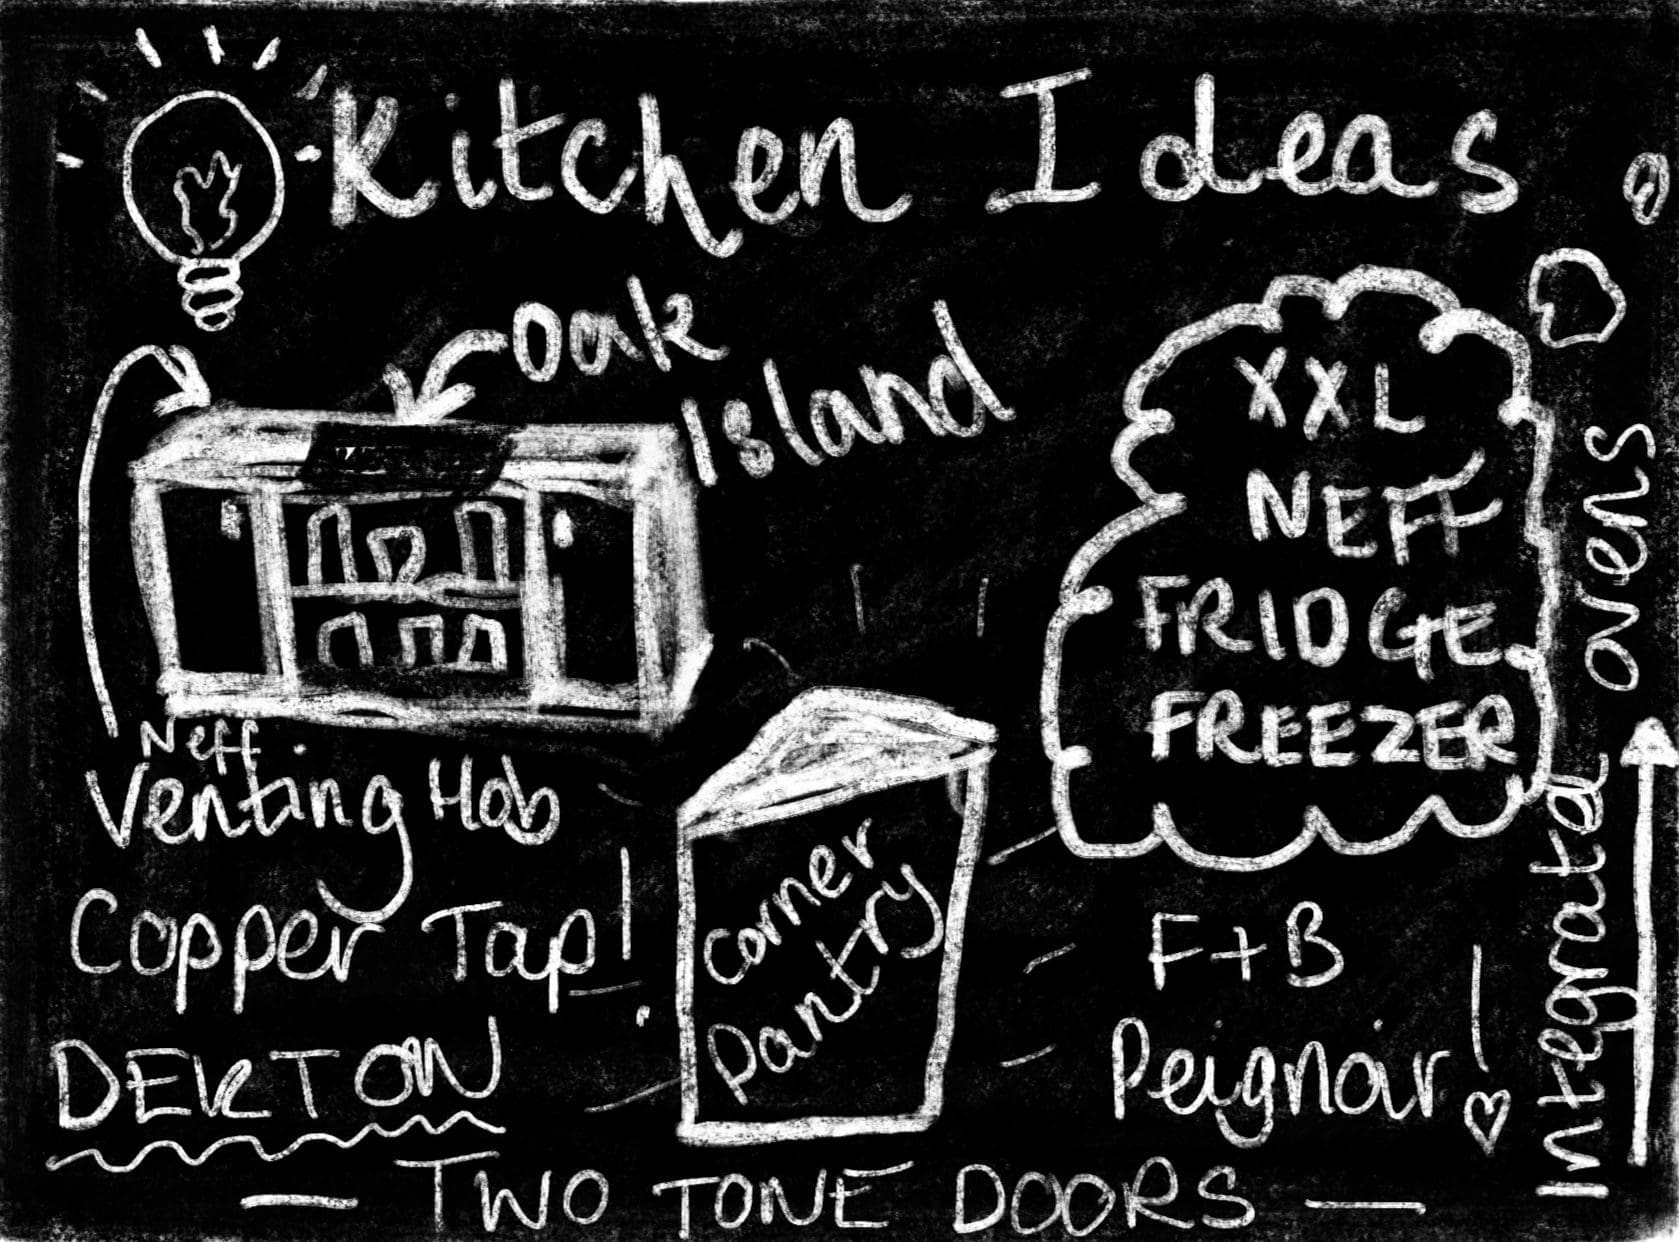 Kitchen Ideas
Oak
Island
XXL
NEFF
FRIDGE
FREEZER
Neff
Venting Hob
Copper Tap!
DEKTON
Corner
Pantry
F+B
Peignoir!
Integrated ovens
— TWO TONE DOORS —